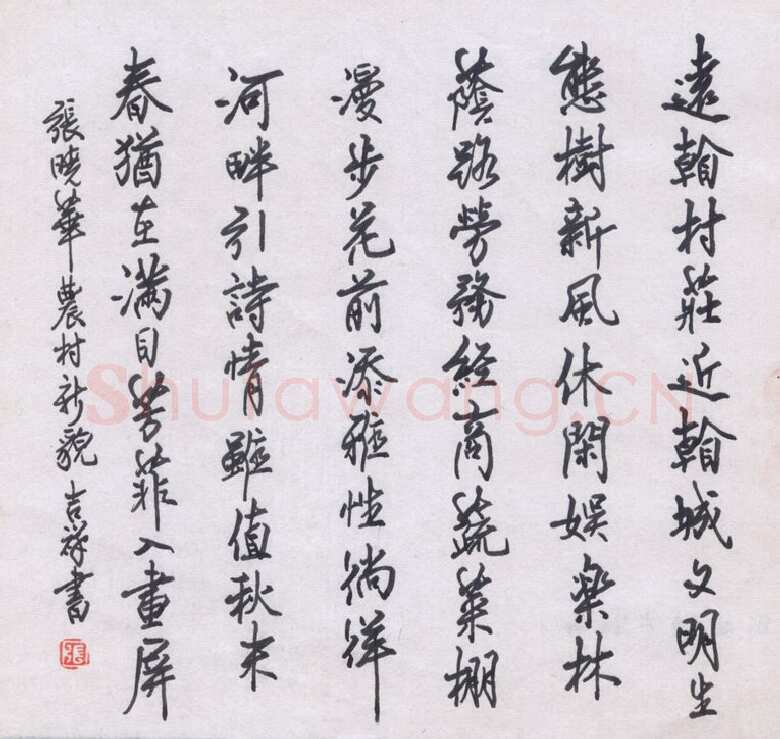 遠翰村莊近翰城文明生
態樹新風休閑娛樂林
蔭路勞務經商蔬菜棚
漫步花前添雅性徜徉
河畔引詩情雖值秋末
春猶在滿目芳菲入畫屏
張曉華農村新貌吉祥書
張
Shufawang.CN